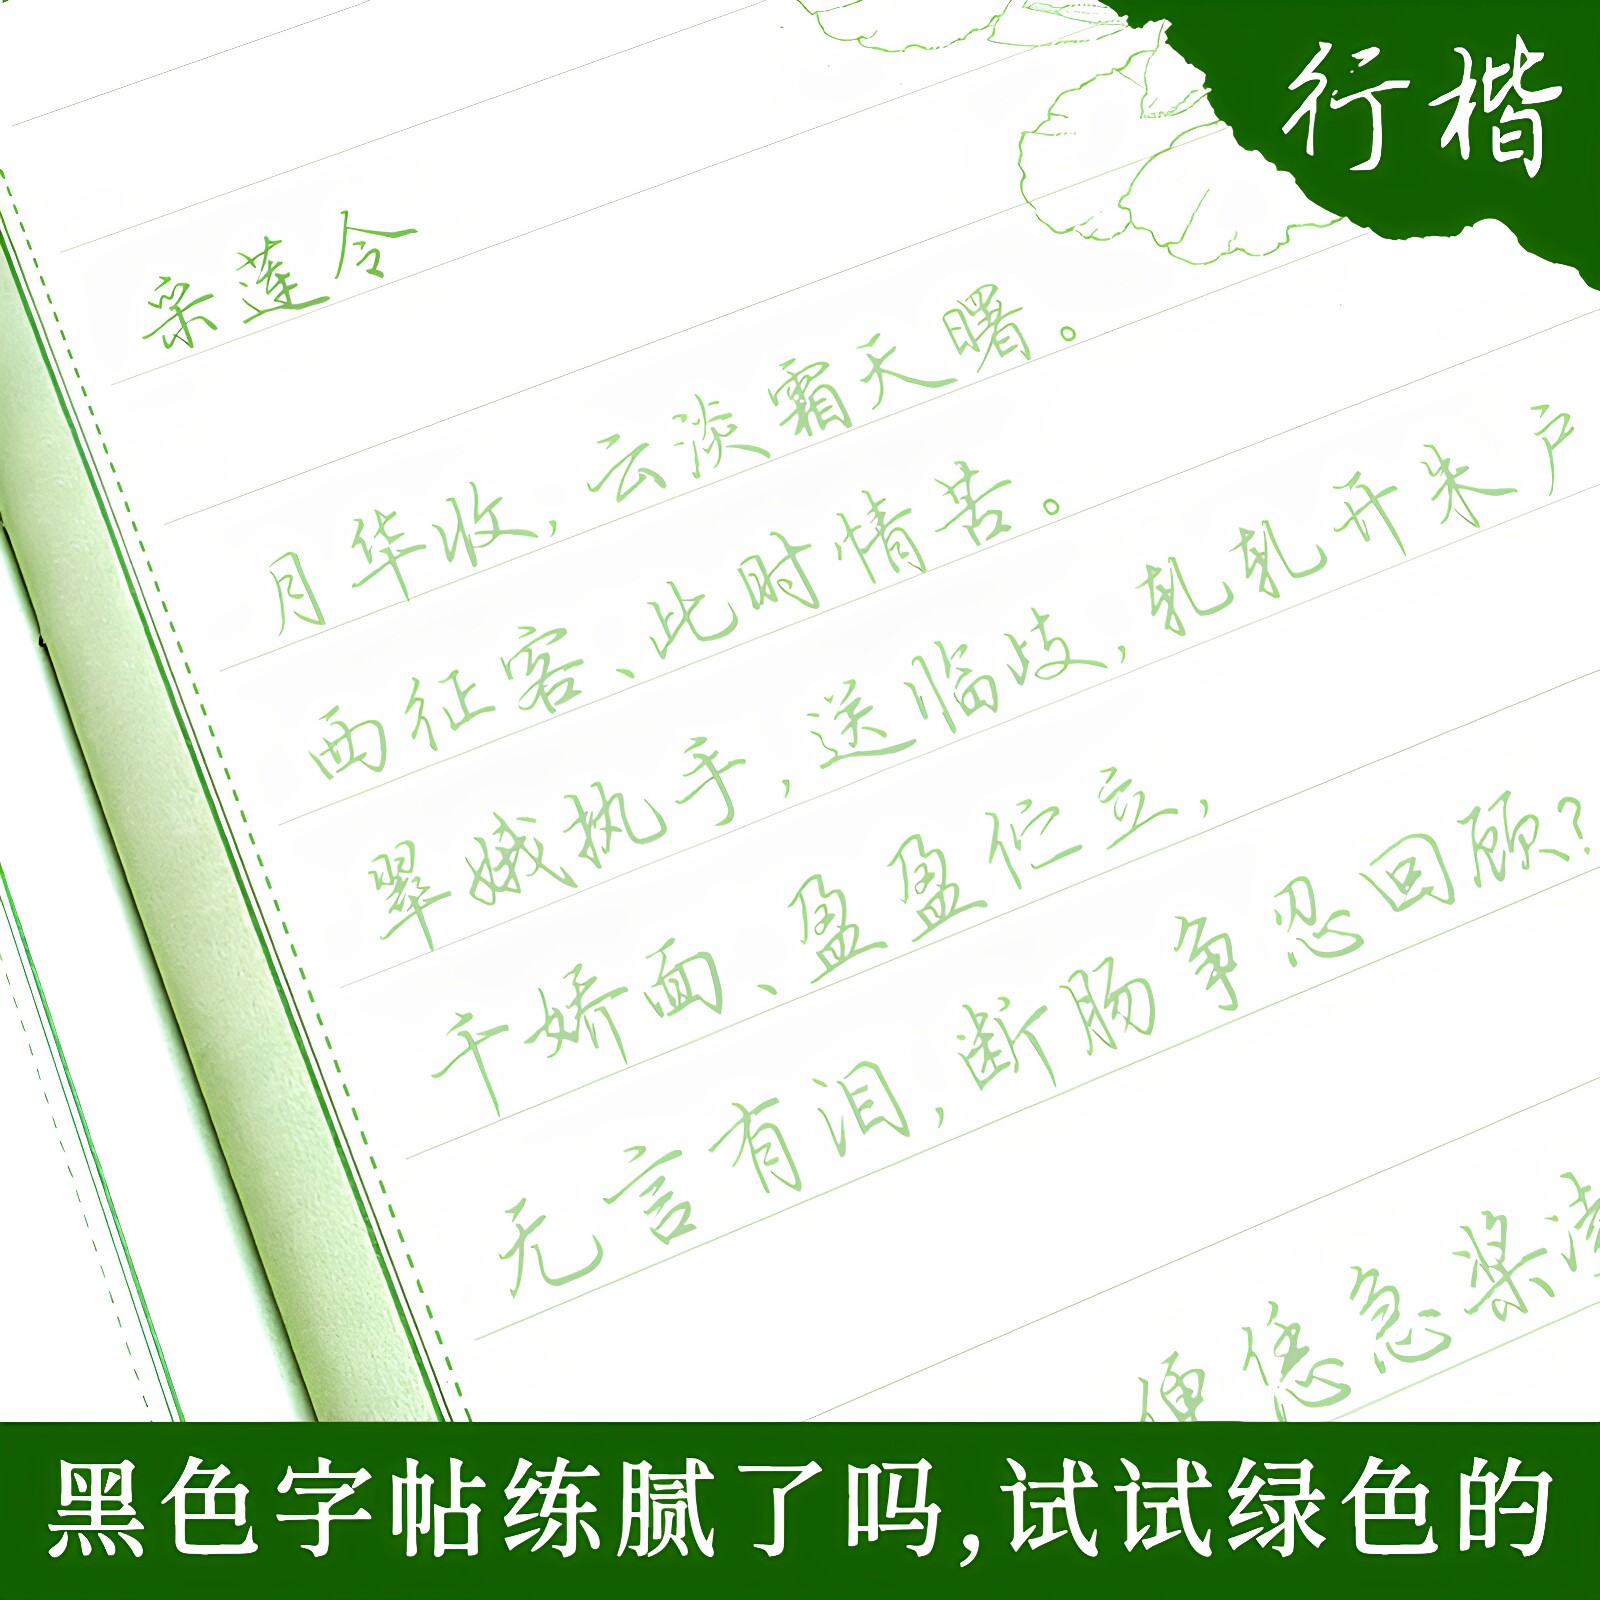 行楷
采莲令
月华收,云淡霜天曙。
西征客、此时情苦。
翠娥执手,送临歧,轧轧开朱户
千娇面、盈盈伫立,
无言有泪,断肠争忍回顾?
便恁急桨凌
黑色字帖练腻了吗,试试绿色的